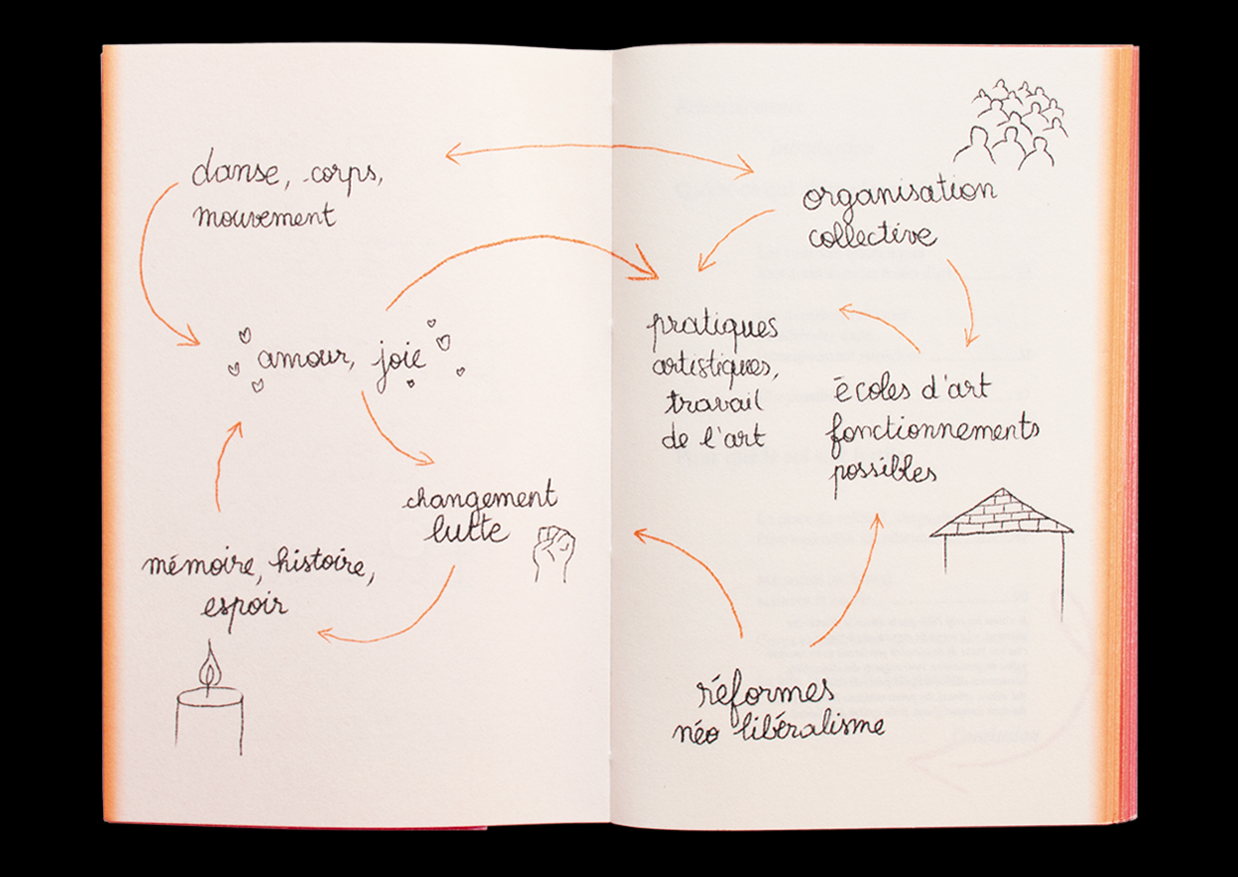 danse, corps,
mouvement
amour, joie
changement
lutte
mémoire, histoire,
espoir
organisation
collective
pratiques
artistiques,
travail
de l'art
écoles d'art
fonctionnements
possibles
réformes
néo libéralisme